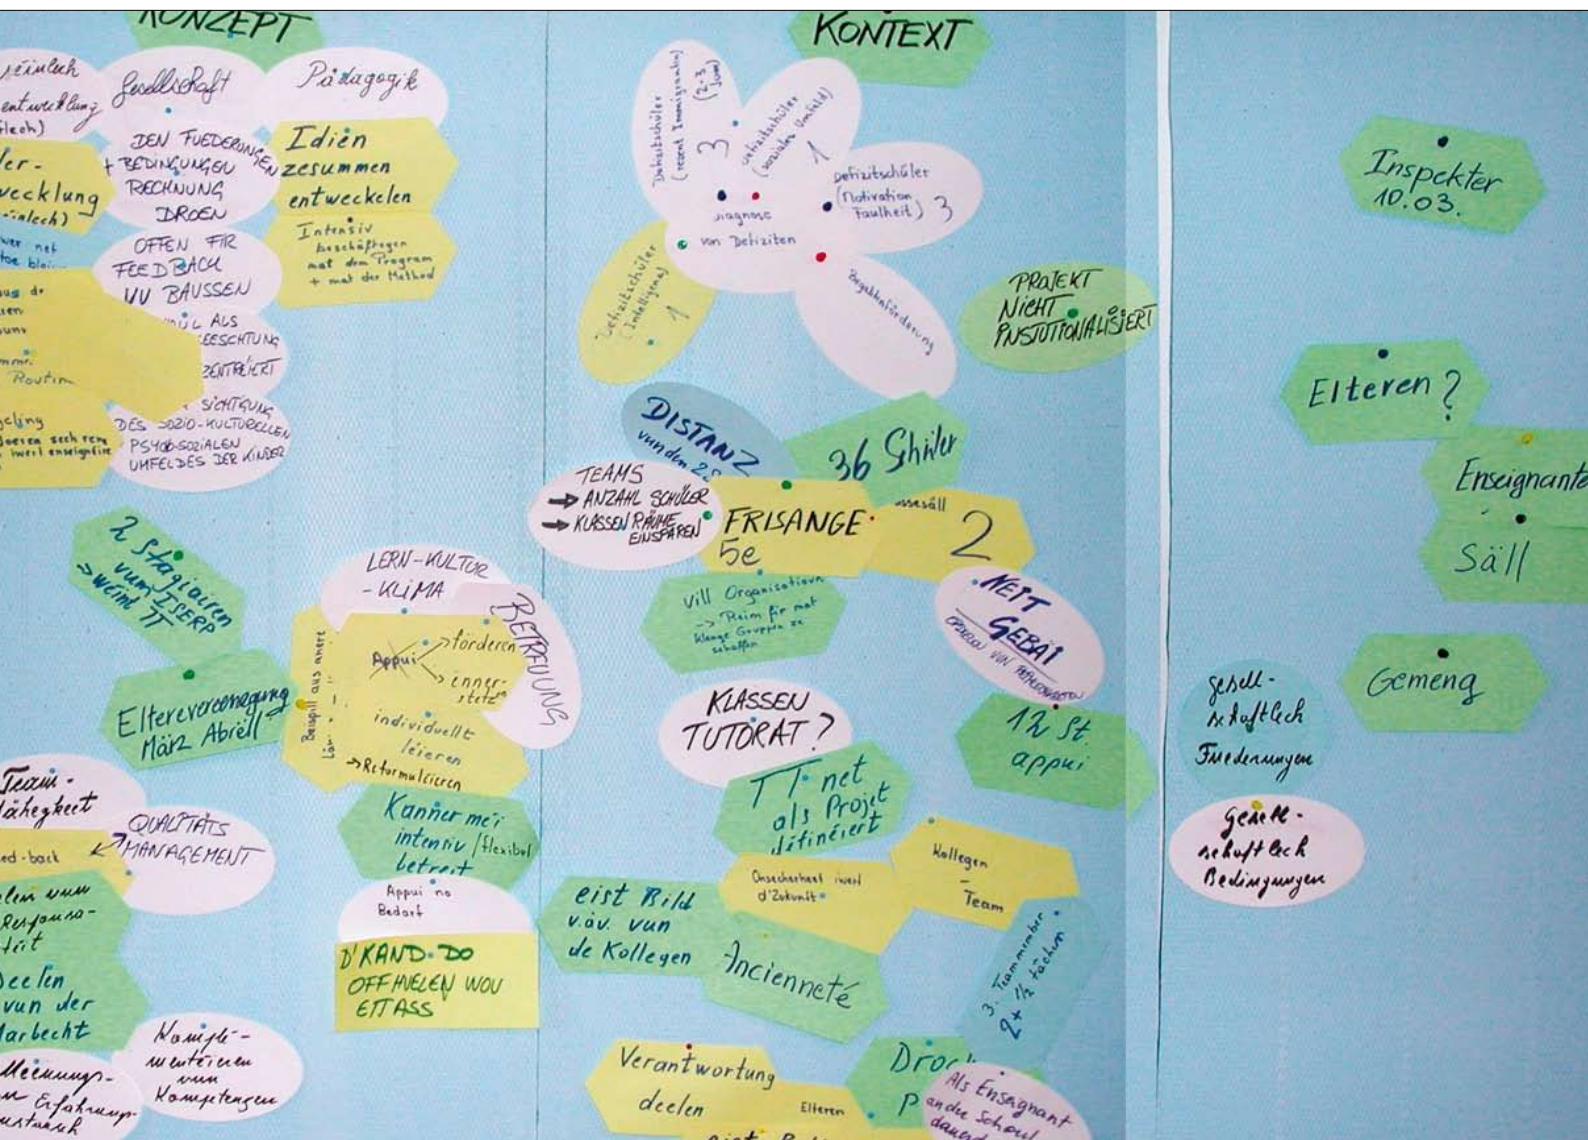 KONZEPT
entwecklung
Gesellschaft
Pädagogik
DEN FUEDERUNGEN
+ BEDINGUNGEN
RECHNUNG
DROEN
Idiën
zesummen
entweckelen
OFFEN FIR
FEEDBACK
VU BAUSSEN
Intensiv
beschäftegen
mat dem Program
+ mat der Method
ALS
ZENTRÉIERT
Routin
SICHTGUNG
DES SOZIO-KULTURELLEN
PSYCO-SOZIALEN
UMFELDES DER KINDER
2 Stagiairen
vum ISERP
Elterevereenegung
März Abrëll
LERN-KULTUR
-KLIMA
BETREUUNG
Beispill aus anere
Appui
förderen
ënner-
stetz
individuellt
léieren
→ Reformuléieren
Team-
fähegkeet
QUALITÄTS
MANAGEMENT
ed-back
Kanner méi
intensiv / flexibel
betreit
Appui no
Bedarf
D'KAND DO
OFFHUELEN WOU
ET ASS
Deelen
vun der
Aarbecht
Komple-
mentéieren
vun
Kompetenzen
Meenungs-
Erfahrungs-
KONTEXT
Defizitschüler
(rezent Immigranten)
(2-3 Joer)
3
Defizitschüler
(soziales Umfeld)
1
Defizitschüler
(Motivation
Faulheit) 3
Diagnose
von Defiziten
Defizitschüler
(Intelligenz)
1
Begabtenförderung
PROJEKT
NICHT
INSTUTIONALISIERT
DISTANZ
vun den 2
36 Schüler
TEAMS
→ ANZAHL SCHÜLER
→ KLASSENRÄUME
EINSPAREN
FRISANGE
5e
2
vill Organisatioun
→ Raim fir mat
klenge Gruppen ze
schaffen
NEIT
GEBAI
KLASSEN
TUTORAT?
12 St.
appui
TT net
als Projet
définéiert
Onsécherheet iwert
d'Zukunft
Kollegen
–
Team
eist Bild
v. äv. vun
de Kollegen
Ancienneté
3. Teammember
2+ 1/2 tâchen
Verantwortung
deelen
Elteren
Als Enseignant
an der Schoul
dauernd
Inspekter
10.03.
Elteren?
Enseignante
Säll
Gemeng
gesell-
schaftlech
Fuederungen
Gesell-
schaftlech
Bedingungen